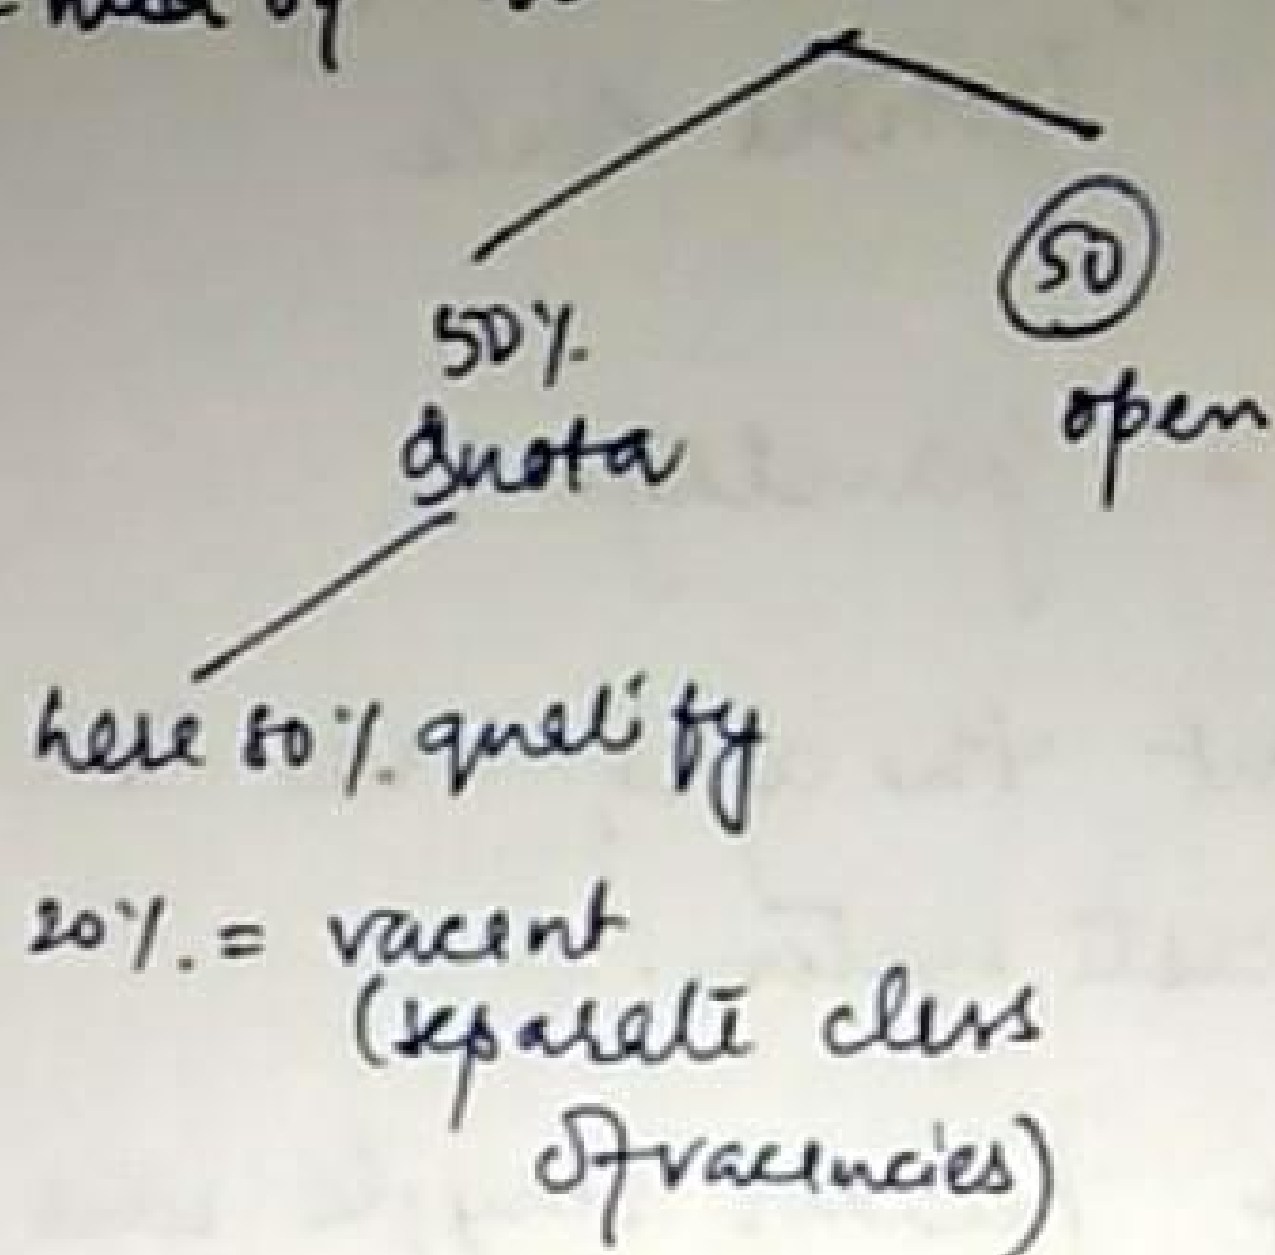 by
50%
Quota
50
open
here 80% qualify
20% = vacent
(separate class
of vacencies)